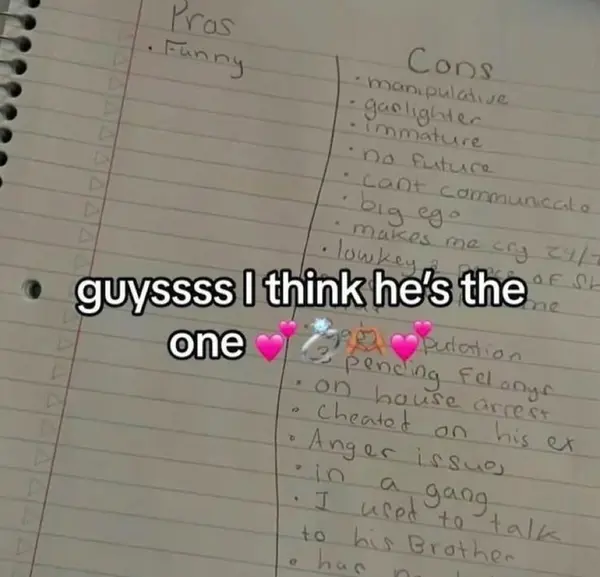 Pros
• Funny
Cons
• manipulative
• gaslighter
• immature
• no future
• cant communicate
• big ego
• makes me cry 24/7
• lowkey a OF
me
guyssss I think he's the
one 💕💍🫶💕
putation
pending felonys
• on house arrest
• Cheated on his ex
• Anger issues
• in a gang
• I used to talk
to his Brother
• has